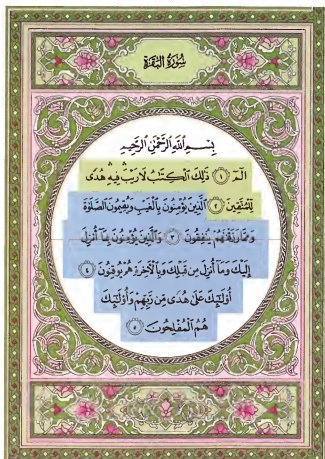 سُورَةُ البَقَرَةِ
بِسْمِ ٱللَّهِ ٱلرَّحْمَٰنِ ٱلرَّحِيمِ
الٓمٓ ١ ذَٰلِكَ ٱلْكِتَٰبُ لَا رَيْبَۛ فِيهِۛ هُدًى
لِّلْمُتَّقِينَ ٢ ٱلَّذِينَ يُؤْمِنُونَ بِٱلْغَيْبِ وَيُقِيمُونَ ٱلصَّلَوٰةَ
وَمِمَّا رَزَقْنَٰهُمْ يُنفِقُونَ ٣ وَٱلَّذِينَ يُؤْمِنُونَ بِمَآ أُنزِلَ
إِلَيْكَ وَمَآ أُنزِلَ مِن قَبْلِكَ وَبِٱلْءَاخِرَةِ هُمْ يُوقِنُونَ ٤
أُو۟لَٰٓئِكَ عَلَىٰ هُدًى مِّن رَّبِّهِمْ وَأُو۟لَٰٓئِكَ
هُمُ ٱلْمُفْلِحُونَ ٥